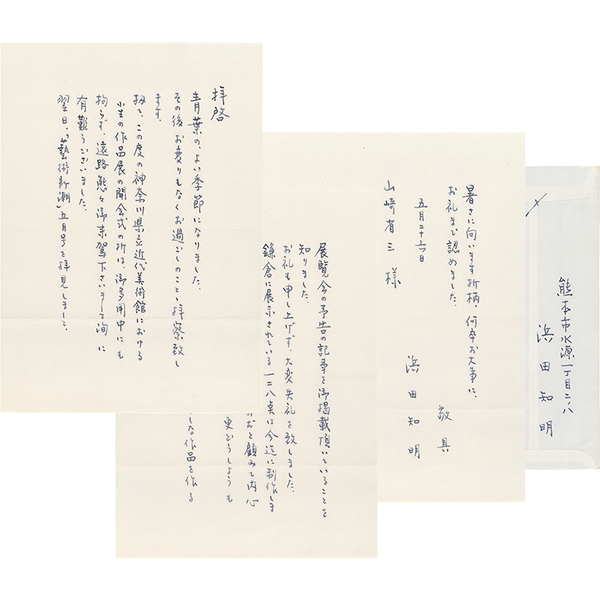 拝啓
青葉の、よい季節になりました。
その後お変りもなくお過ごしのことゝ拝察致し
ます。
扨て、この度の神奈川県立近代美術館における
小生の作品展の開会式の折は、御多用中にも
拘らず、遠路態々御来駕下さいまして洵に
有難うございました。
翌日、「藝術新潮」五月号を拝見しまして、
展覧会の予告の記事を御掲載頂いていることを
知りました。
お礼も申し上げず、大変失礼を致しました。
鎌倉に展示されている一二八点は今迄に制作しま
のおと顧みて内心
更どうしようも
しな作品を作る
暑さに向います折柄、何卒お大事に。
お礼まで認めました。
敬具
五月二十六日
浜田知明
山崎省三様
熊本市水源一丁目二ノ八
浜田知明